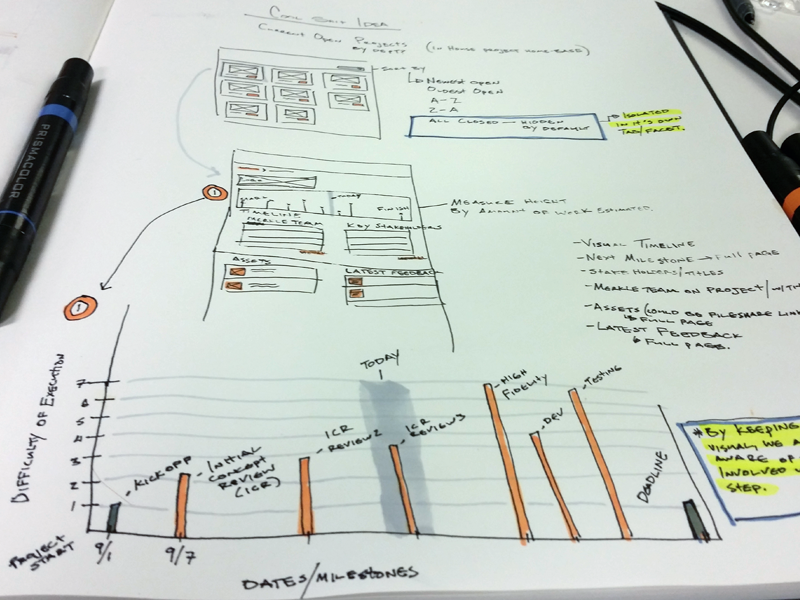 COOL SHIT IDEA
CURRENT OPEN PROJECTS
BY DEPT
(IN HOUSE PROJECT HOME-BASE)
SORT BY
NEWEST OPEN
OLDEST OPEN
A-Z
Z-A
ALL CLOSED — HIDDEN
BY DEFAULT
ISOLATED
IN IT'S OWN
TAB/FACET.
PRISMACOLOR
1
FINISH
TIMELINE
MERKLE TEAM
KEY STAKEHOLDERS
ASSETS
LATEST FEEDBACK
MEASURE HEIGHT
BY AMOUNT OF WORK ESTIMATED.
- VISUAL TIMELINE
- NEXT MILESTONE → FULL PAGE
- STAKEHOLDERS/TITLES
- MERKLE TEAM ON PROJECT/W/
- ASSETS (COULD BE FILESHARE LINK
FULL PAGE
- LATEST FEEDBACK
FULL PAGE.
1
DIFFICULTY OF EXECUTION
7
6
5
4
3
2
1
TODAY
KICKOFF
INITIAL
CONCEPT
REVIEW
(ICR)
ICR
REVIEW 2
ICR
REVIEW 3
HIGH
FIDELITY
DEV
TESTING
DEADLINE
* BY KEEPING
VISUAL WE A
AWARE OF
INVOLVED
STEP.
PROJECT
START
9/1
9/7
DATES/MILESTONES